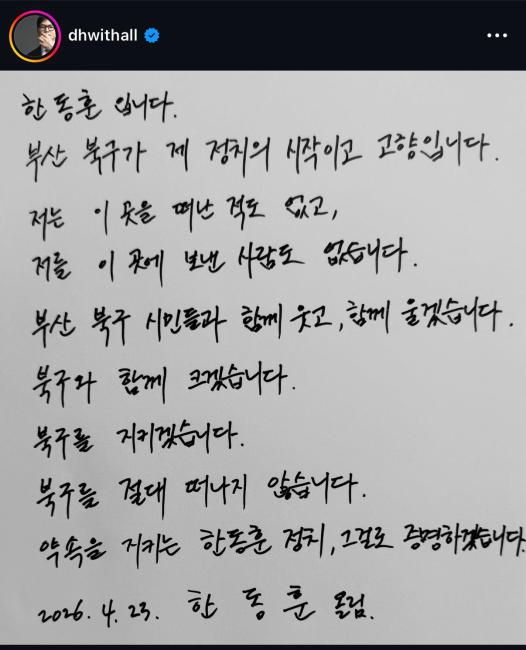 dhwithall
한동훈 입니다.
부산 북구가 제 정치의 시작이고 고향입니다.
저는 이 곳을 떠난 적도 없고,
저를 이 곳에 보낸 사람도 없습니다.
부산 북구 시민들과 함께 웃고, 함께 울겠습니다.
북구와 함께 크겠습니다.
북구를 지키겠습니다.
북구를 절대 떠나지 않습니다.
약속을 지키는 한동훈 정치, 그걸로 증명하겠습니다
2026. 4. 23. 한 동 훈 올림.